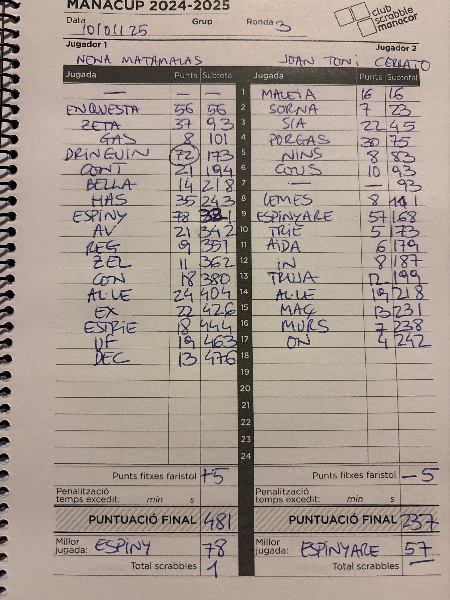 MANACUP 2024-2025
club scrabble manacor
Data 10/01/25 Grup Ronda 3
Jugador 1 Jugador 2
NENA MATAMALAS JOAN TONI CERRATO
Jugada Punts Subtotal Jugada Punts Subtotal
— — — 1 MALEIA 16 16
ENQUESTA 56 56 2 SORNA 7 23
ZETA 37 93 3 SIA 22 45
GAS 8 101 4 PORGAS 30 75
DRINGUIN 72 173 5 NINS 8 83
CONT 21 194 6 COUS 10 93
BELLA 14 218 7 — — 93
HAS 35 243 8 LEMES 8
ESPINY 78 321 9 ESPINYARE 57 168
AV 21 342 10 TRIE 5 173
REG 9 351 11 AIDA 6 179
ZEL 11 362 12 IN 8 187
CON 18 380 13 TRUJA 12 199
AL·LE 24 404 14 AL·LE 19 218
EX 22 426 15 MAG 13 231
ESTRIE 18 444 16 MURS 7 238
UF 19 463 17 ON 4 242
DEC 13 476 18
19
20
21
22
23
24
Punts fitxes faristol +5 Punts fitxes faristol -5
Penalització temps excedit: min s Penalització temps excedit: min s
PUNTUACIÓ FINAL 481 PUNTUACIÓ FINAL 237
Millor jugada: ESPINY 78 Millor jugada: ESPINYARE 57
Total scrabbles 1 Total scrabbles —